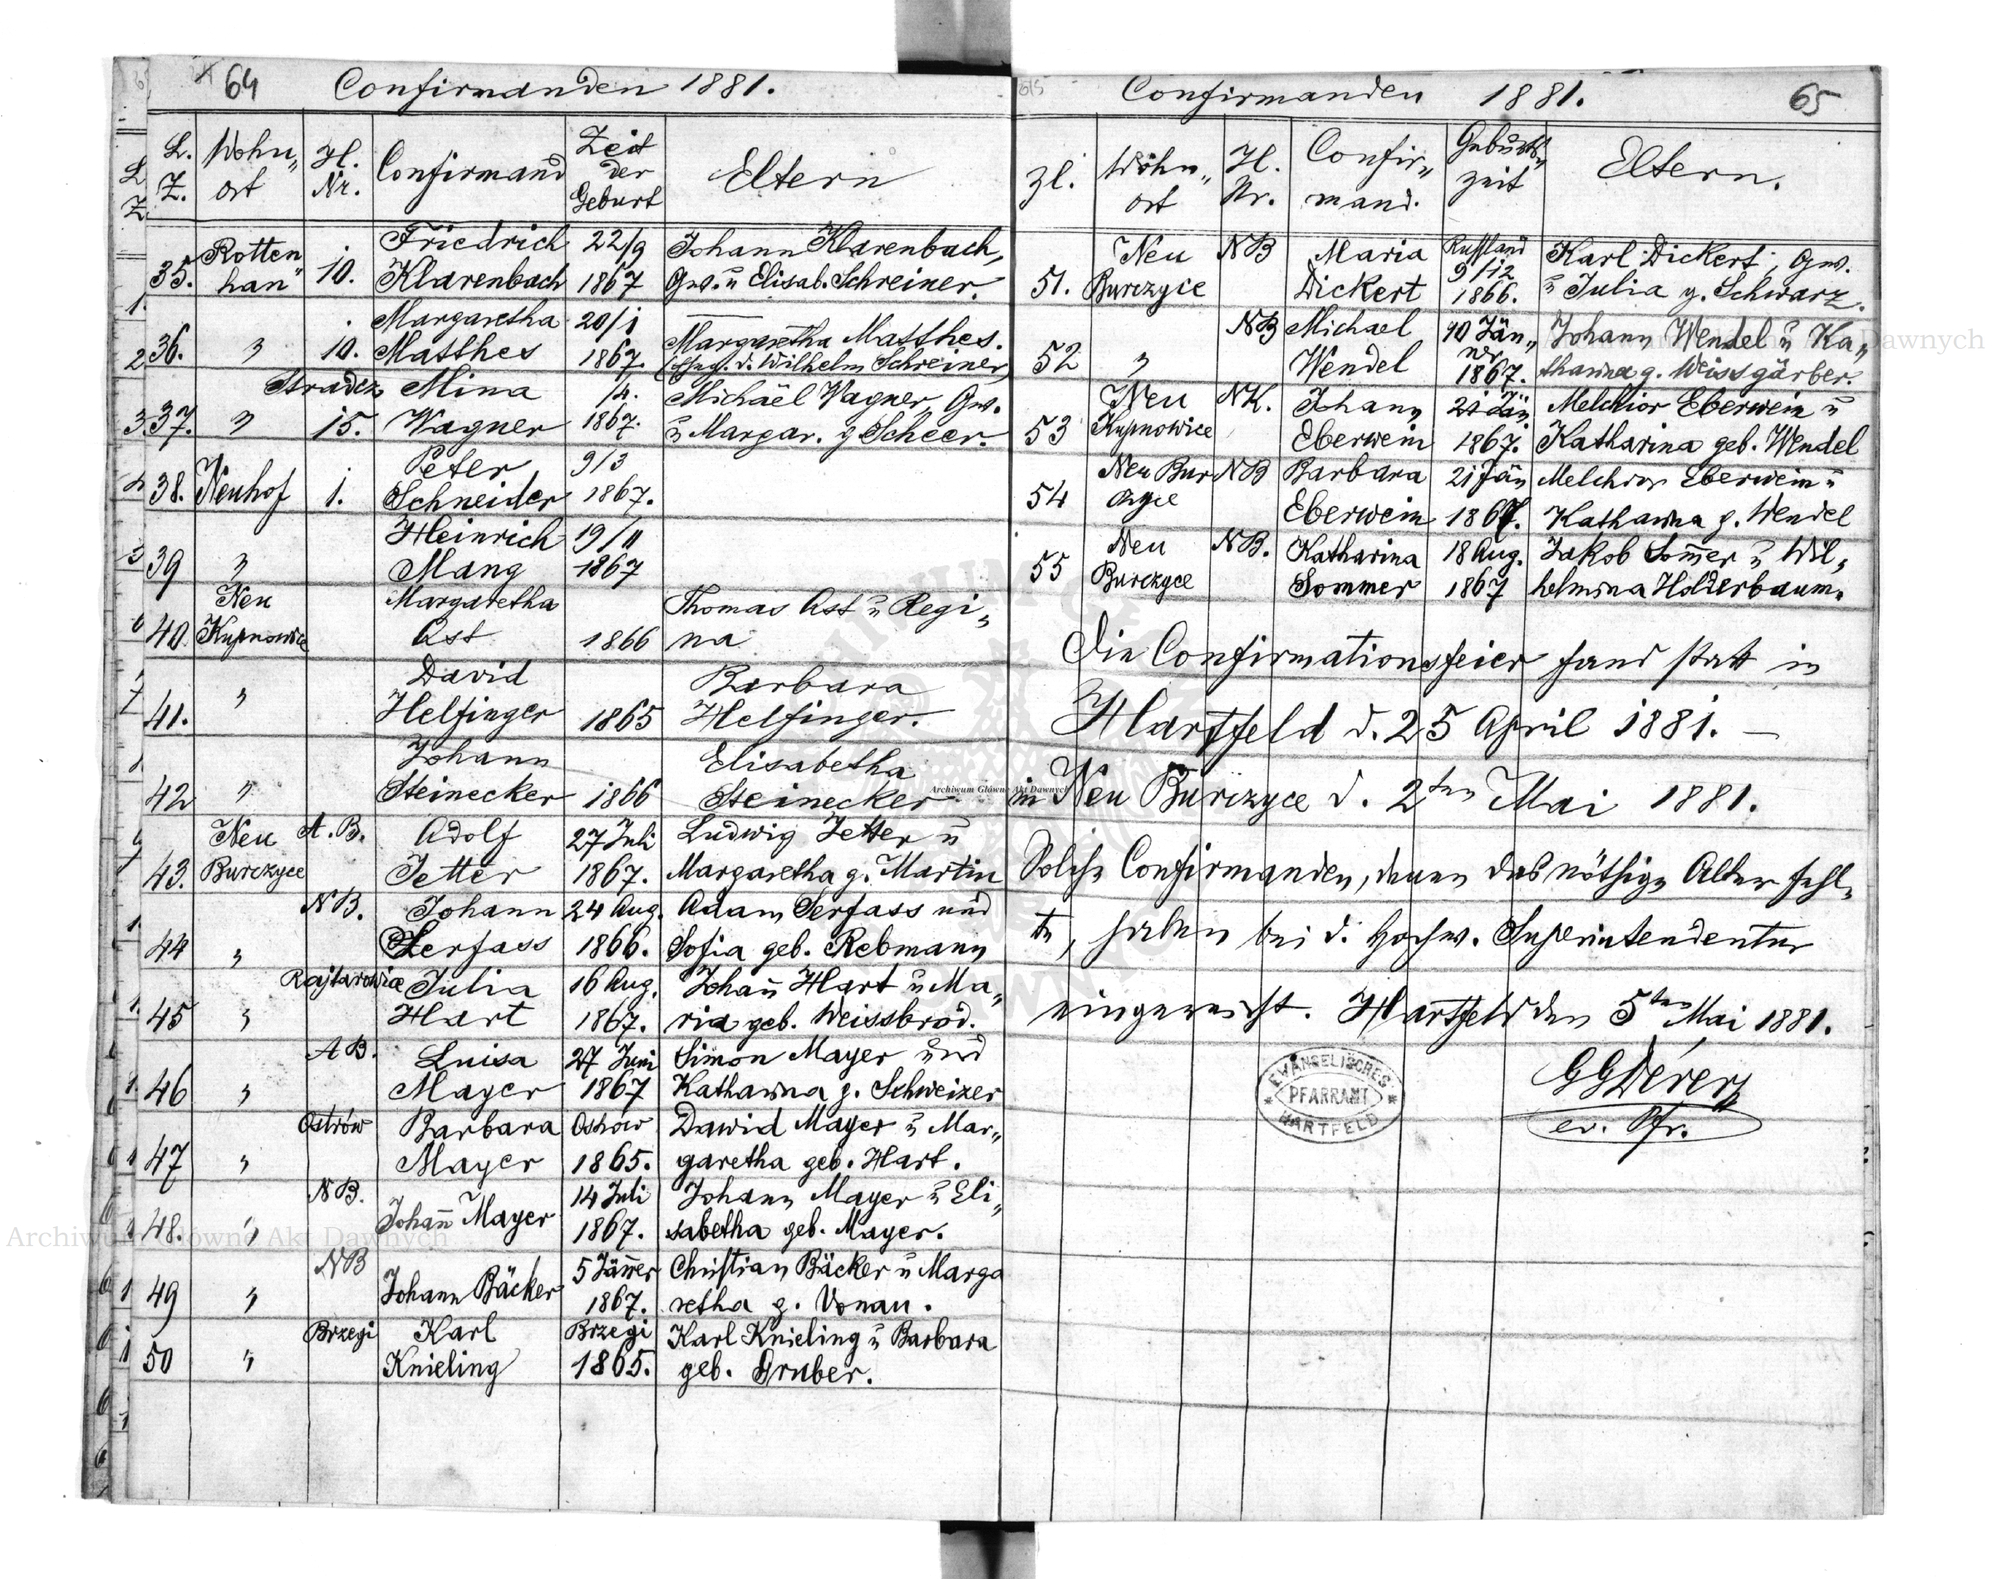 64 Confirmanden 1881.
L. Z. Wohn„ort H. Nr. Confirmand Zeit der Geburt Eltern
Rotten Friedrich 22/9 Johann Klarenbach,
35. han" 10. Klarenbach 1867 Gw. ü Elisab. Schreiner.
Margaretha 20/1 Margaretha Matthes.
36. " 10. Matthes 1867. d. Wilhelm Schreiner)
Stradcz Mina /4. Michaël Wagner, Gw.
37. " 15. Wagner 1867. ü Margar. g Scheer.
Peter 9/3
38. Neuhof 1. Schneider 1867.
Heinrich 19/11
39 " Mang 1867
Neu Margaretha Thomas Ast ü Regi„
40. Kupnowice Ast 1866 na
David Barbara
41. " Helfinger 1865 Helfinger.
Johann Elisabetha
42 " Steinecker 1866 Steinecker
Neu A. B. Adolf 27 Juli Ludwig Jetter ü
43. Burczyce Jetter 1867. Margaretha g. Martin
N B. Johann 24 Aug. Adam Serfass und
44 " Serfass 1866. Sofia geb. Rebmann
Rajtarowice Julia 16 Aug. Johan̄ Hart ü Ma„
45 " Hart 1867. ria geb. Weissbrod.
A B. Luisa 27 Juni Simon Mayer und
46 " Mayer 1867 Katharina g. Schweizer
Ostrów Barbara Ostrow Dawid Mayer ü Mar„
47 " Mayer 1865. garetha geb. Hart.
N B. 14 Juli Johann Mayer ü Eli„
48. " Johan̄ Mayer 1867. sabetha geb. Mayer.
N B 5 Jän̄er Christian Bäcker ü Marga
49 " Johann Bäcker 1867. retha g. Vonau.
Brzegi Karl Brzegi Karl Knieling ü Barbara
50 " Knieling 1865. geb. Gruber.
Confirmanden 1881. 65
Zl. Wohn„ort H. Nr. Confir„mand. Geburts„zeit Eltern.
Neu N B Maria Russland Karl Dickert, Gw.
51. Burczyce Dickert 9/12 1866. ü Julia g. Schwarz.
N B Michael 10 Jän„ Johann Wendel ü Ka„
52 " Wendel ner 1867. tharina g. Weissgärber.
Neu N K. Johann 21 Jän Melchior Eberwein ü
53 Kupnowice Eberwein 1867. Katharina geb. Wendel
Neu Bur N B Barbara 21 Jän Melchior Eberwein ü
54 czyce Eberwein 1867. Katharina g. Wendel
Neu N B. Katharina 18 Aug. Jakob Som̄er ü Wil„
55 Burczyce Sommer 1867 helmina Holderbaum.
Die Confirmationsfeier fand statt in
Hartfeld d. 25 April 1881. —
in Neu Burczyce d. 2ten Mai 1881.
Solche Confirmanden, denen das nöthige Alter fehl„
te, haben bei d. Hochw. Superintendentur
eingereicht. Hartfeld den 5ten Mai 1881.
EVANGELISCHES
PFARRAMT
HARTFELD
G G Dévérz
ev. Pfr.
Archiwum Główne Akt Dawnych
Archiwum Główne Akt Dawnych
Archiwum Główne Akt Dawnych